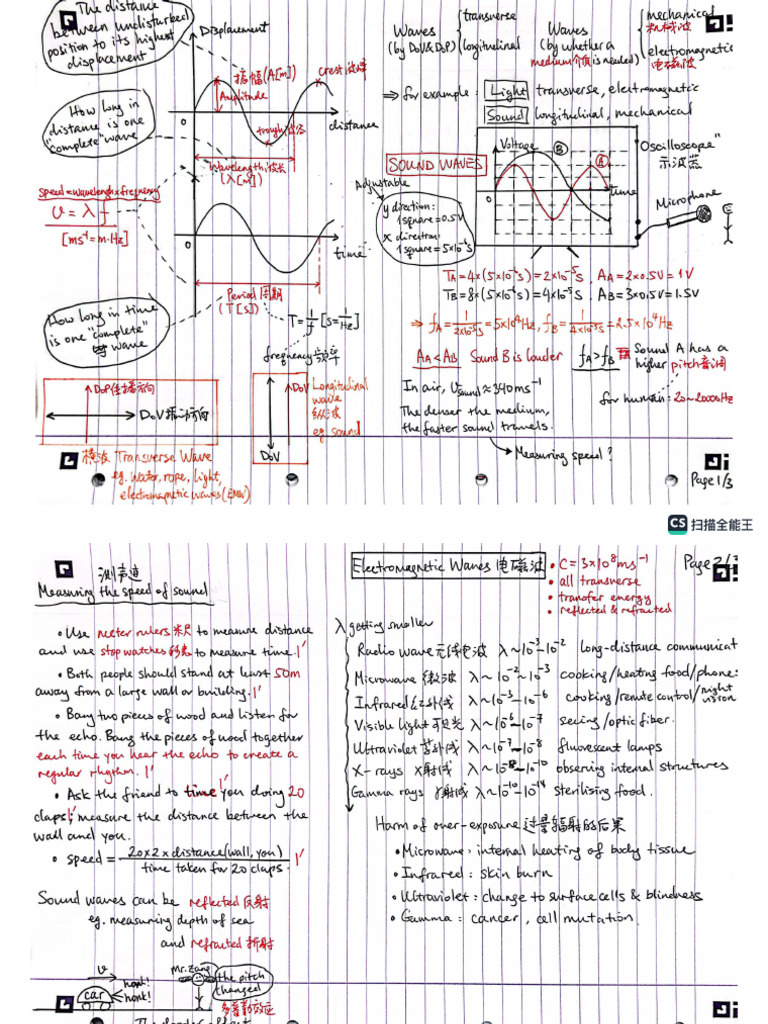 The distance
between undisturbed
position to its highest
displacement
Displacement
振幅(A[m])
Amplitude
crest 波峰
trough 波谷
0
distance
How long in
distance is one
"complete" wave
Wavelength 波长
(λ[m])
speed=wavelength×frequency
v = λf
[ms⁻¹=m·Hz]
0
time
Period 周期
(T[s])
T=1/f [s=1/Hz]
frequency 频率
How long in time
is one "complete"
wave
DoP 传播方向
DoV 振动方向
横波 Transverse Wave
eg. water, rope, light,
electromagnetic waves (EMW)
DoV
Longitudinal
wave
纵波
eg. sound
DoV
Waves
(by DoV&DoP)
transverse
longitudinal
Waves
(by whether a
medium介质 is needed)
mechanical
机械波
electromagnetic
电磁波
⇒ for example:
Light transverse, electromagnetic
Sound longitudinal, mechanical
SOUND WAVES
Voltage
B
A
0
Time
"Oscilloscope"
示波器
Microphone
Adjustable
y direction:
1 square=0.5V
x direction:
1 square=5×10⁻⁶s
TA=4×(5×10⁻⁶s)=2×10⁻⁵s, AA=2×0.5V=1V
TB=8×(5×10⁻⁶s)=4×10⁻⁵s, AB=3×0.5V=1.5V
⇒ fA=1/2×10⁻⁵s=5×10⁴Hz, fB=1/4×10⁻⁵s=2.5×10⁴Hz
AA<AB Sound B is louder
fA>fB Sound A has a
higher pitch音调
In air, vsound≈340ms⁻¹
for human: 20~20000Hz
The denser the medium,
the faster sound travels.
→ Measuring speed?
Page 1/3
CS 扫描全能王
测声速
Measuring the speed of sound
• Use meter rulers米尺 to measure distance
and use stop watches秒表 to measure time. 1'
• Both people should stand at least 50m
away from a large wall or building. 1'
• Bang two pieces of wood and listen for
the echo. Bang the pieces of wood together
each time you hear the echo to create a
regular rhythm. 1'
• Ask the friend to time you doing 20 1'
claps; 1' measure the distance between the
wall and you.
• speed = 20×2×distance(wall, you)/time taken for 20 claps. 1'
Sound waves can be reflected 反射
eg. measuring depth of sea
and refracted 折射
v
car
honk!
honk!
Mr. Zang
the pitch
changed
Electromagnetic Waves 电磁波
• C=3×10⁸ms⁻¹
• all transverse
• transfer energy
• reflected & refracted
Page 2/3
λ getting smaller
Radio wave无线电波 λ~10⁻³~10⁻² long-distance communicat
Microwave 微波 λ~10⁻²~10⁻³ cooking/heating food/phone:
Infrared 红外线 λ~10⁻³~10⁻⁶ cooking/remote control/night vision
Visible light 可见光 λ~10⁻⁶~10⁻⁷ seeing/optic fiber.
Ultraviolet 紫外线 λ~10⁻⁷~10⁻⁸ fluorescent lamps
X-rays X射线 λ~10⁻⁸~10⁻¹⁰ observing internal structures
Gamma rays γ射线 λ~10⁻¹⁰~10⁻¹⁴ sterilising food.
Harm of over-exposure 过量辐射的后果
• Microwave: internal heating of body tissue
• Infrared: skin burn
• Ultraviolet: change to surface cells & blindness
• Gamma: cancer, cell mutation.